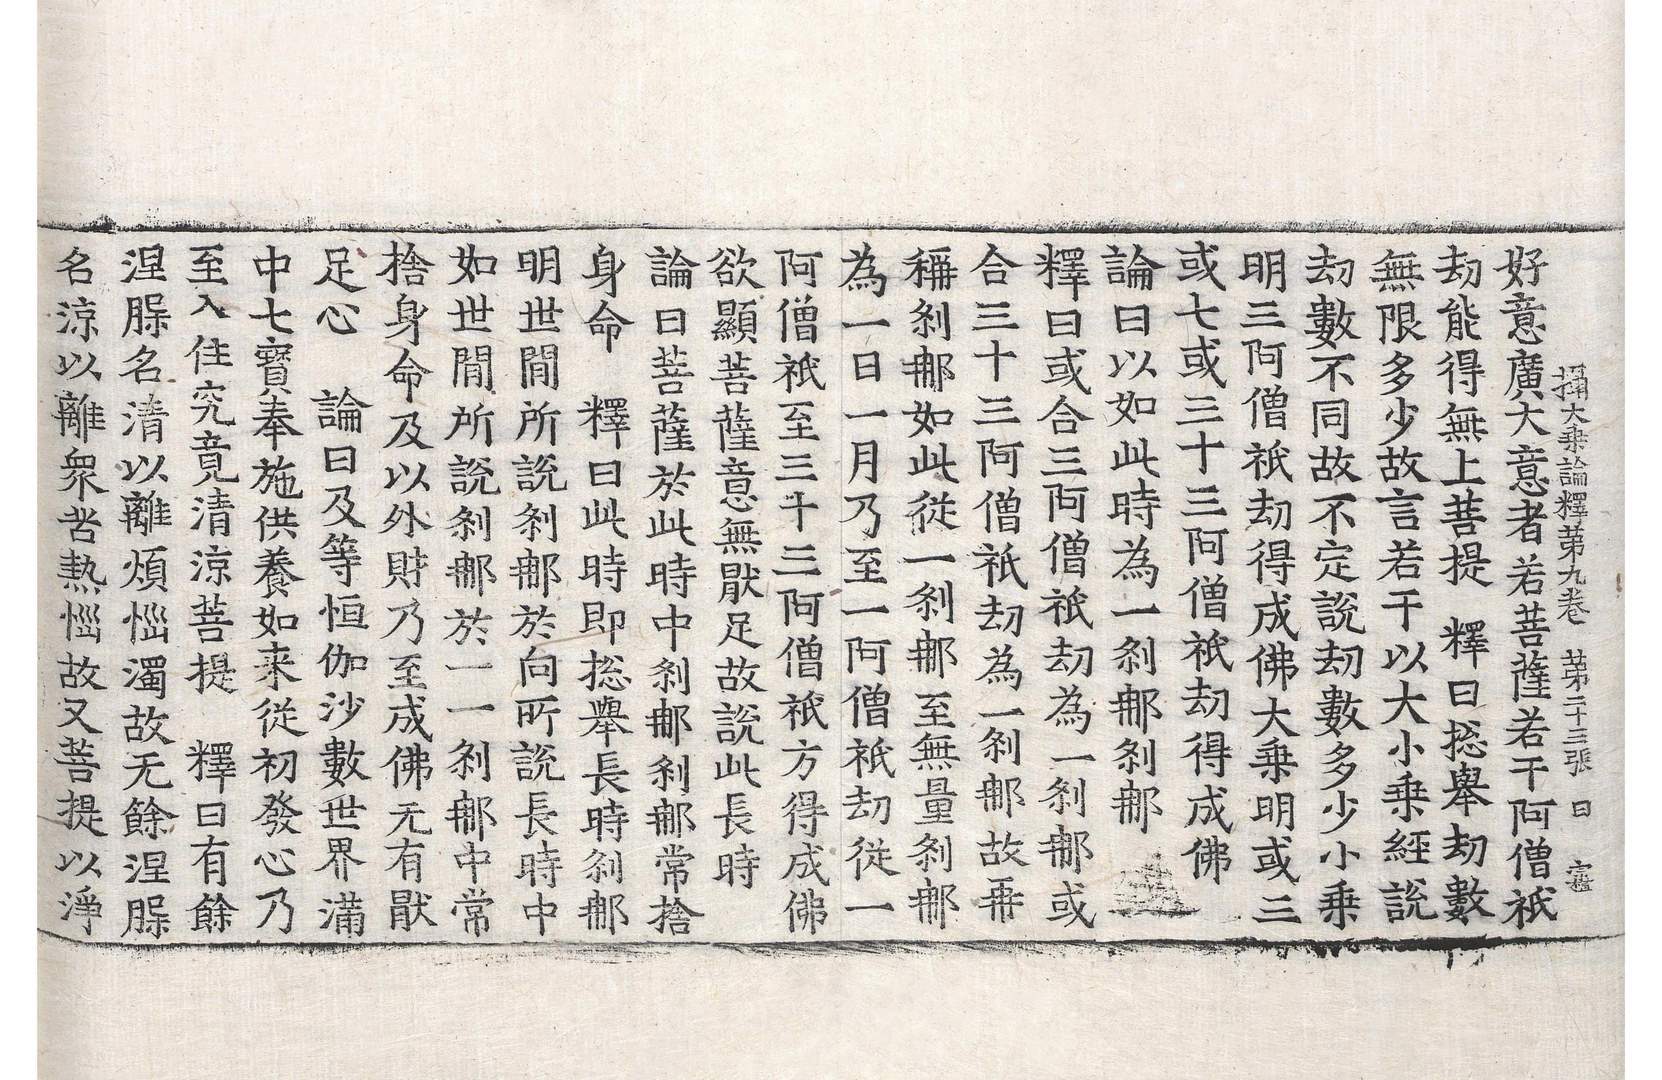 攝大乘論釋第九卷 第二十三張 曰
好意廣大意者若菩薩若干阿僧祇
劫能得無上菩提 釋曰捴舉劫數
無限多少故言若干以大小乗經說
劫數不同故不定說劫數多少小乗
明三阿僧祇劫得成佛大乗明或三
或七或三十三阿僧祇劫得成佛
論曰以如此時為一剎㖠剎㖠
釋曰或合三阿僧祇劫為一剎㖠或
合三十三阿僧祇劫為一剎㖠故再
稱剎㖠如此從一剎㖠至無量剎㖠
為一日一月乃至一阿僧祇劫從一
阿僧祇至三十三阿僧祇方得成佛
欲顯菩薩意無猒足故說此長時
論曰菩薩於此時中剎㖠剎㖠常捨
身命 釋曰此時即捴舉長時剎㖠
明世間所說剎㖠於向所說長時中
如世間所說剎㖠於一一剎㖠中常
捨身命及以外財乃至成佛无有猒
足心 論曰及等恒伽沙數世界滿
中七寶奉施供養如来從初發心乃
至入住究竟清涼菩提 釋曰有餘
涅槃名清以離煩惱濁故无餘涅槃
名涼以離衆苦熱惱故又菩提以淨